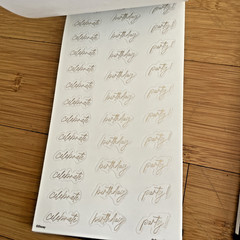 celebrate birthday party!
celebrate birthday party!
celebrate birthday party!
celebrate birthday party!
celebrate birthday party!
celebrate birthday party!
celebrate birthday party!
celebrate birthday party!
celebrate birthday party!
celebrate birthday party!
celebrate birthday party!
celebrate birthday party!